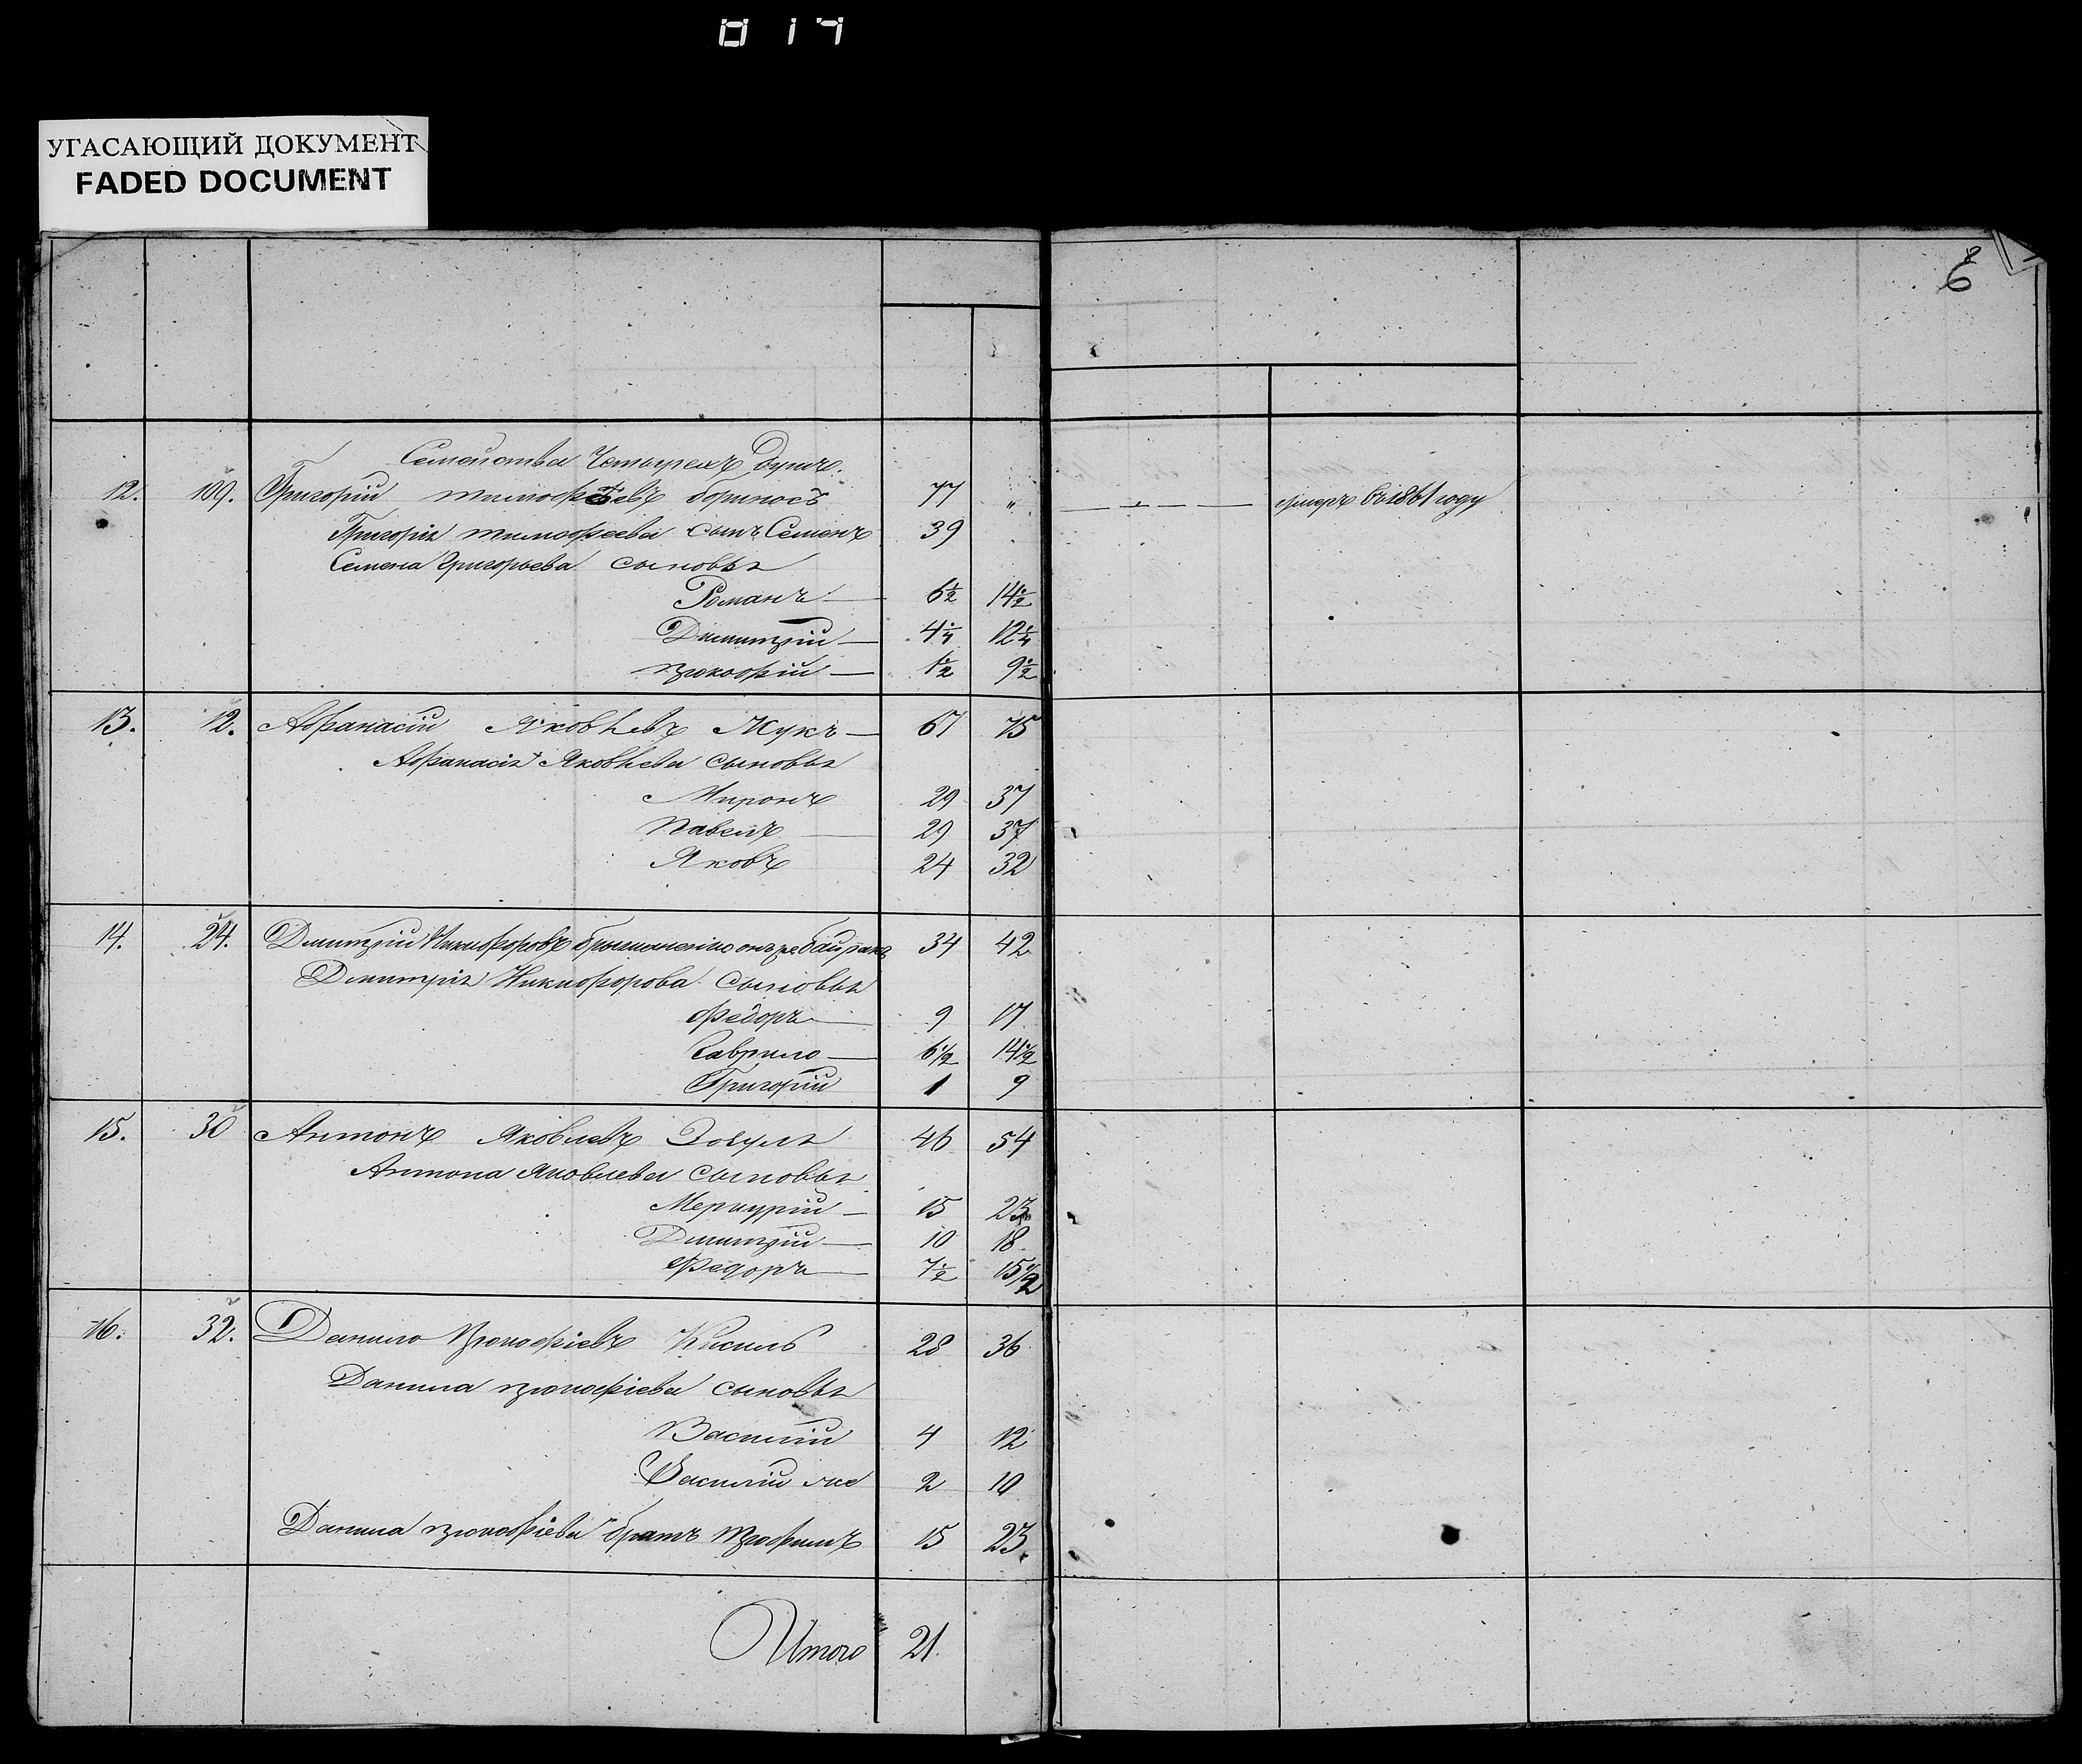 014
УГАСАЮЩИЙ ДОКУМЕНТ
FADED DOCUMENT
8
6
Семейства Четырехъ душъ.
12. 109. Григорій Тимофѣевъ 77 " умеръ въ 1861 году
Григорія Тимофеева сынъ Семенъ 39
Семена Григорьева сыновья
Романъ 6½ 14½
Димитрій 4¼ 12¼
Прокофій 1½ 9½
13. 12. Афанасій Яковлевъ Жукъ 67 75
Афанасія Яковлева сыновья
Миронъ 29 37
Павелъ 29 37
Яковъ 24 32
14. 24. Дмитрій Никифоровъ онъ же 34 42
Дмитрія Никифорова сыновья
Федоръ 9 17
Гаврило 6½ 14½
Григорій 1 9
15. 30 Антонъ Яковлевъ 46 54
Антона Яковлева сыновья
Меркурій 15 23
Дмитрій 10 18
Федоръ 7½ 15½
16. 32. Данило Прокофіевъ Кисиль 28 36
Данила Прокофіева сыновья
Василій 4 12
Василій же 2 10
Данила Прокофіева братъ Трофимъ 15 23
Итого 21